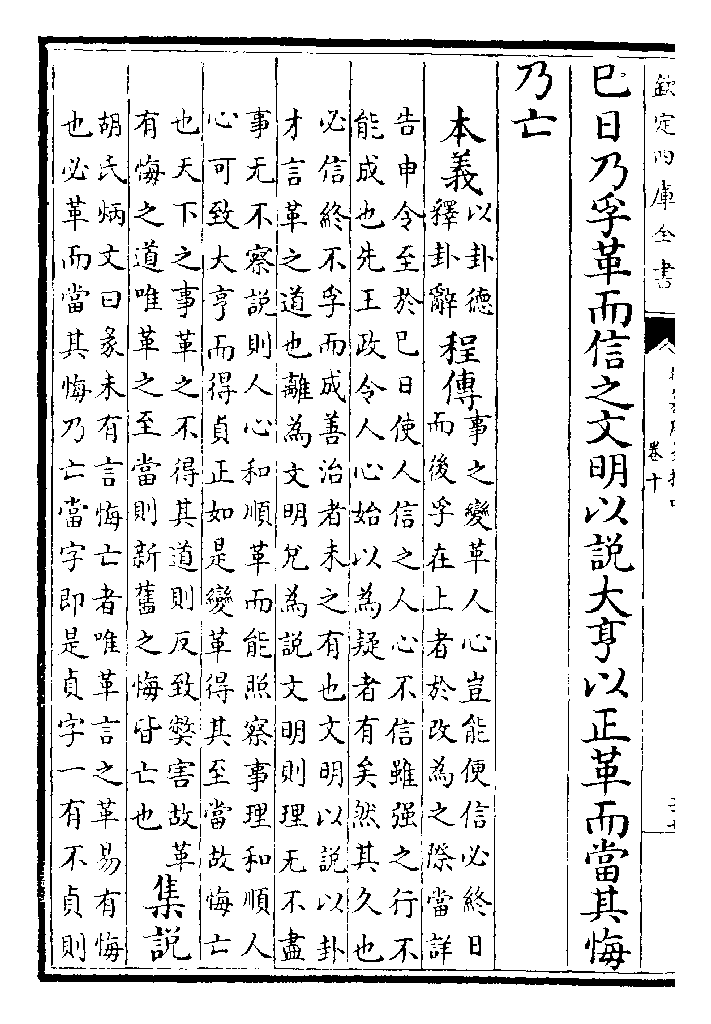 欽定四庫全書
卷十
巳日乃孚革而信之文明以說大亨以正革而當其悔
乃亡
本義以卦德
釋卦辭程傳事之變革人心豈能便信必終日
而後孚在上者於改為之際當詳
告申令至於巳日使人信之人心不信雖强之行不
能成也先王政令人心始以為疑者有矣然其久也
必信終不孚而成善治者未之有也文明以說以卦
才言革之道也離為文明兌為說文明則理无不盡
事无不察說則人心和順革而能照察事理和順人
心可致大亨而得貞正如是變革得其至當故悔亡
也天下之事革之不得其道則反致弊害故革
有悔之道唯革之至當則新舊之悔皆亡也集說
胡氏炳文曰彖未有言悔亡者唯革言之革易有悔
也必革而當其悔乃亡當字即是貞字一有不貞則